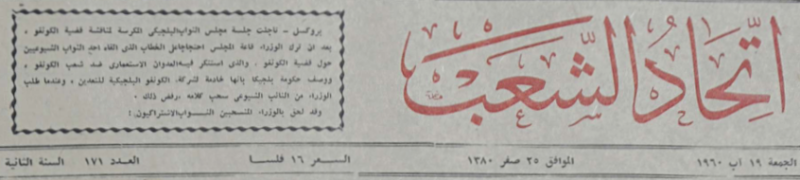 اتحاد الشعب
بروكسل - تاجلت جلسة مجلس النواب البلجيكي المكرسة لمناقشة قضية الكونغو ،
بعد ان ترك الوزراء قاعة المجلس احتجاجا على الخطاب الذى القاه احد النواب الشيوعيين
حول قضية الكونغو . والذى استنكر فيه العدوان الاستعمارى ضد شعب الكونغو ،
ووصف حكومة بلجيكا بانها خادمة لشركة الكونغو البلجيكية للتعدين ، وعندما طلب
الوزراء من النائب الشيوعي سحب كلامه ، رفض ذلك .
وقد لحق بالوزراء المنسحبين النواب الاشتراكيون .
الجمعة ١٩ اب ١٩٦٠
الموافق ٢٥ صفر ١٣٨٠
السعر ١٦ فلسا
العدد ١٧١
السنة الثانية